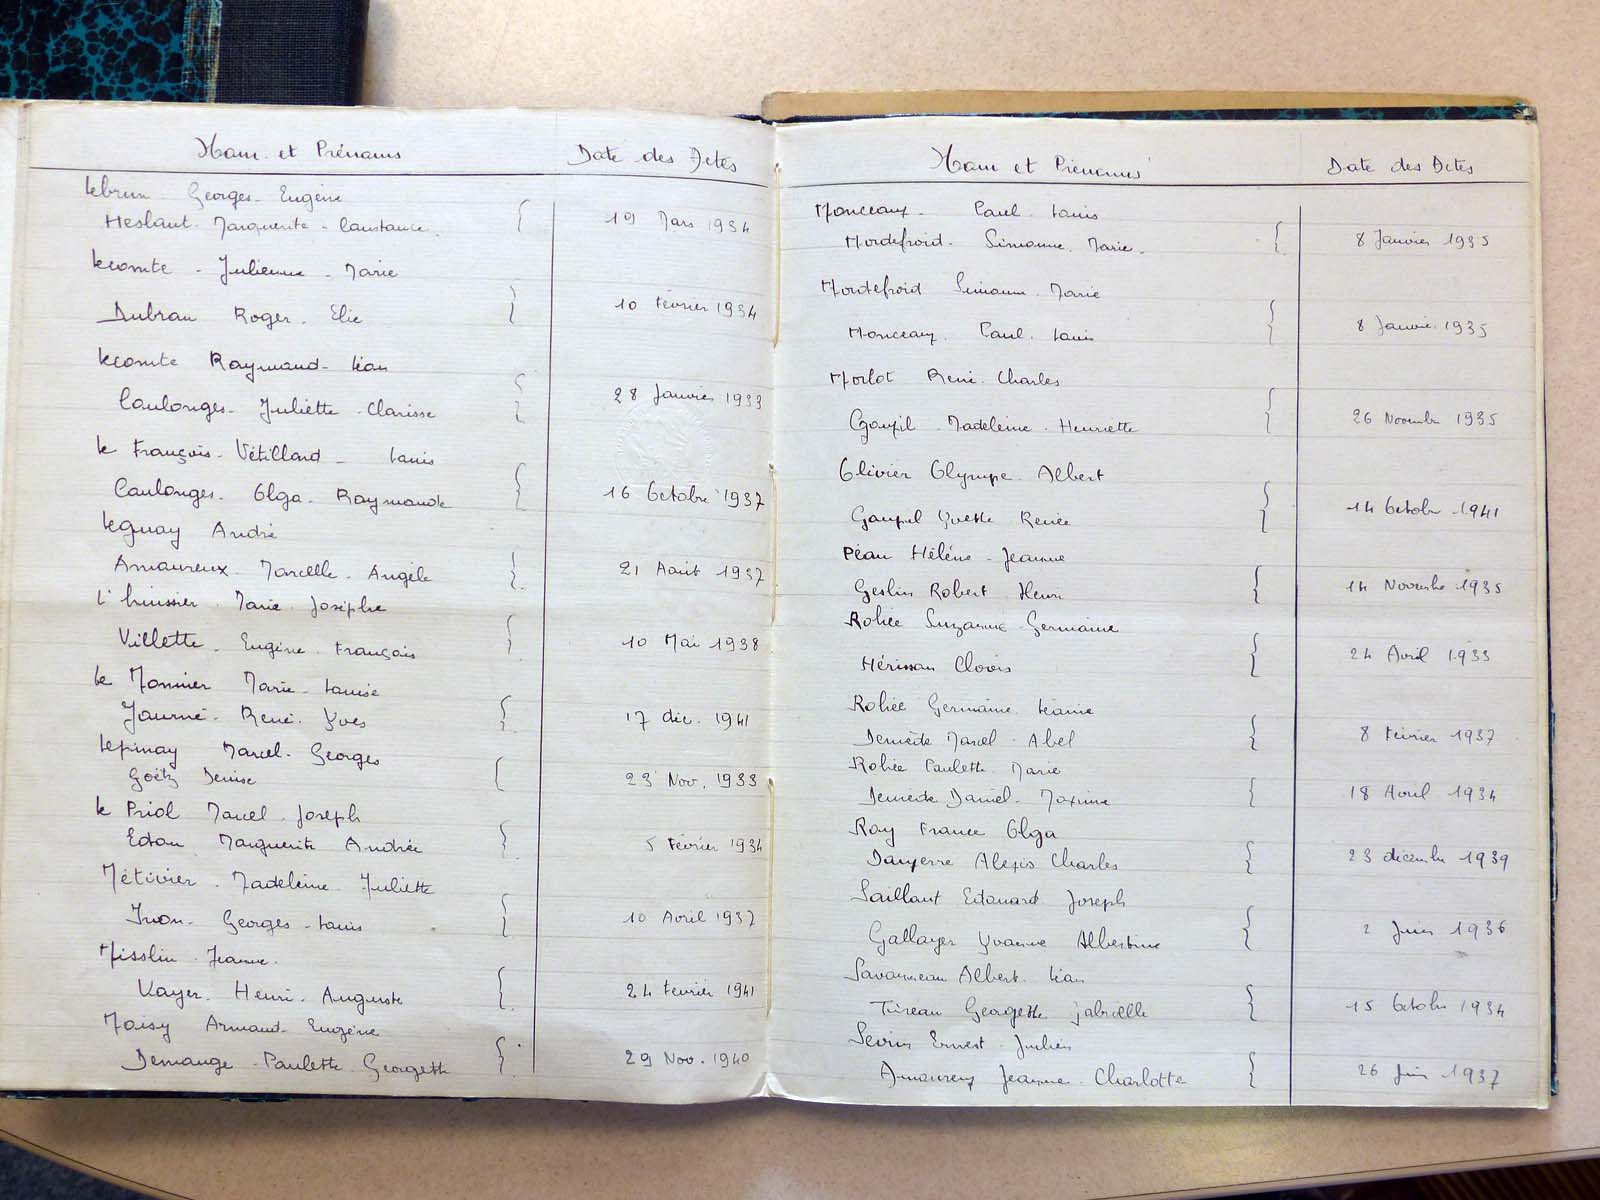 Nom et Prénoms
Date des Actes
Lebrun Georges Eugène
Heslaut Marguerite Constance
19 Mars 1934
Lecomte Julienne Marie
Dubrau Roger Elie
10 Février 1934
Lecomte Raymond Léon
Coulonges Juliette Clarisse
28 Janvier 1933
Le François Vétillard Louis
Coulonges Olga Raymonde
16 Octobre 1937
Leguay André
Amoureux Marcelle Angèle
21 Août 1937
L'huissier Marie Josèphe
Villette Eugène François
10 Mai 1938
Le Monnier Marie Louise
Journé René Yves
17 déc. 1941
Lepinay Marcel Georges
Goëtz Denise
23 Nov. 1933
Le Priol Marcel Joseph
Edon Marguerite Andrée
5 Février 1934
Métivier Madeleine Juliette
Ivon Georges Louis
10 Avril 1937
Misslin Jeanne
Kayer Henri Auguste
24 Février 1941
Moisy Armand Eugène
Demange Paulette Georgette
29 Nov. 1940
Nom et Prénoms
Date des Actes
Monceaux Paul Louis
Mordefroid Simonne Marie
8 Janvier 1935
Mordefroid Simonne Marie
Monceaux Paul Louis
8 Janvier 1935
Morlot René Charles
Goupil Madeleine Henriette
26 Novembre 1935
Olivier Olympe Albert
Goupil Yvette Renée
14 Octobre 1941
Péan Hélène Jeanne
Geslin Robert Henri
14 Novembre 1935
Robée Suzanne Germaine
Hérisson Clovis
24 Avril 1933
Robée Germaine Léanie
Demède Marcel Abel
8 Février 1937
Robée Paulette Marie
Demède Daniel Maxime
18 Avril 1934
Roy France Olga
Alexis Charles
23 décembre 1939
Saillant Edouard Joseph
Gallayer Yvonne Albertine
2 Juin 1936
Savanneau Albert Léon
Tireau Georgette Gabrielle
15 Octobre 1934
Sevin Ernest Julien
Amoureux Jeanne Charlotte
26 Juin 1937